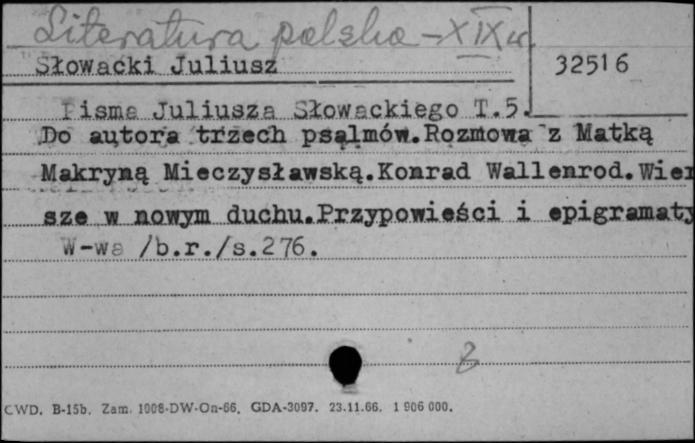 Literatura polska - XIX w.
Słowacki Juliusz
32516
Pisma Juliusza Słowackiego T.5.
Do autora trzech psalmów.Rozmowa z Matką
Makryną Mieczysławską.Konrad Wallenrod.Wier
sze w nowym duchu.Przypowieści i epigramaty
W-wa /b.r./s.276.
CWD. B-15b. Zam. 1008-DW-On-66. GDA-3097. 23.11.66. 1 906 000.